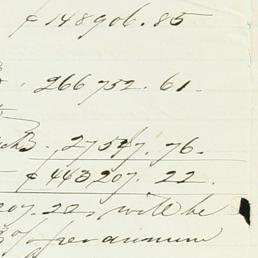 $148906.85
266752.61.
27547.76.
$443207.22.
207.22, will be
% per annum